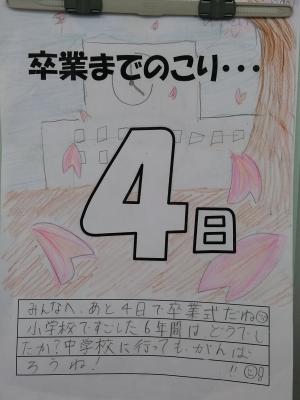 卒業までのこり・・・
4日
みんなへ、あと4日で卒業式だね
小学校ですごした6年間はどうでし
たか？中学校に行っても、がんば
ろうね！ !!